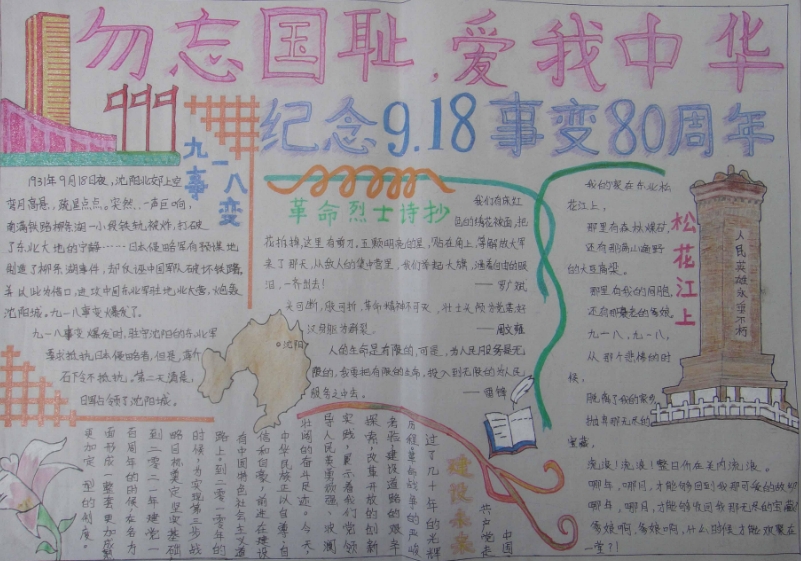 勿忘国耻,爱我中华
纪念9.18事变80周年
九一八
事变
1931年9月18日夜,沈阳北郊上空
弯月高悬,疏星点点。突然,一声巨响,
南满铁路柳条湖一小段铁轨被炸,打破
了东北大地的宁静……日本侵略军有预谋地
制造了柳条湖事件,却反诬中国军队破坏铁路,
并以此为借口,进攻中国东北军驻地北大营,炮轰
沈阳城。九一八事变爆发了。
九一八事变爆发时,驻守沈阳的东北军
要求抵抗日本侵略者,但是,蒋介
石下令不抵抗,第二天清晨,
日军占领了沈阳城。
沈阳
革命烈士诗抄
我们有床红
色的绣花被面,把
花拆掉,这里有剪刀,
来了那天,从敌人的集中营里,我们举起大旗,洒着自由的眼
泪,一齐出去!
头可断,肢可折,革命精神不可灭,壮士头颅为党落,好
汉身躯为群裂。
——周文雍
人的生命是有限的,可是,为人民服务是无
限的,我要把有限的生命,投入到无限的为人民
服务之中去。
——雷锋
松花江上
我的家在东北松
花江上,
那里有森林煤矿,
还有那满山遍野
的大豆高粱。
那里有我的同胞,
还有那衰老的爹娘。
九一八,九一八,
从那个悲惨的时
候,
脱离了我的家乡
抛弃那无尽的
宝藏,
流浪!流浪!整日价在关内流浪。
哪年,哪月,才能够回到我那可爱的故乡?
哪年,哪月,才能够收回我那无尽的宝藏?
爹娘啊,爹娘啊,什么时候,才能欢聚在
一堂?!
人民英雄永垂不朽
建设未来
中国
共产党走
过了几十年的光辉
历程,革命战争的严峻
考验,建设道路的艰辛
探索,改革开放的创新
实践,展示着我们党领
导人民英勇顽强、波澜
壮阔的奋斗足迹。今天
中华民族正以自尊、自
信和自豪,前进在建设
有中国特色社会主义道
路上。到二零一零年的
时候,为实现第三步战
略目标奠定坚实基础
到二零二一年建党一
百周年的时候,在各方
面形成一整套更加成熟
更加定型的制度。